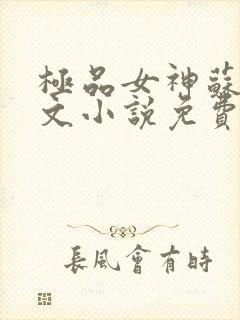 極品女神蘇
文小說免費
長風會有時